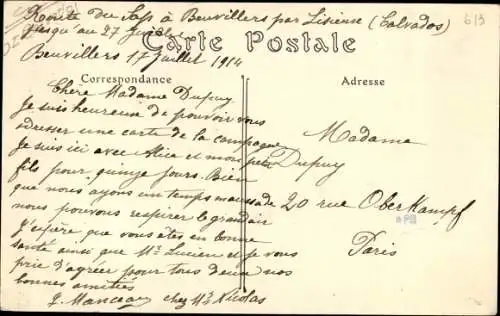 Route du Sap à Beuvillers par Lisieux (Calvados)
jusqu'au 27 Juillet
Carte Postale
613
Beuvillers 17 Juillet 1914
Correspondance
Adresse
Chère Madame Dupuy
Je suis heureuse de pouvoir vous
adresser une carte de la campagne
Je suis ici avec Alice et mon petit
fils pour quinze jours. Bien
que nous ayons un temps maussade
nous pouvons respirer le grand air
J'espère que vous êtes en bonne
santé ainsi que Mr Lucien et je vous
prie d'agréer pour tous deux nos
bonnes amitiés
Manceau chez Mr Nicolas
Madame
Dupuy
20 rue Oberkampf
Paris